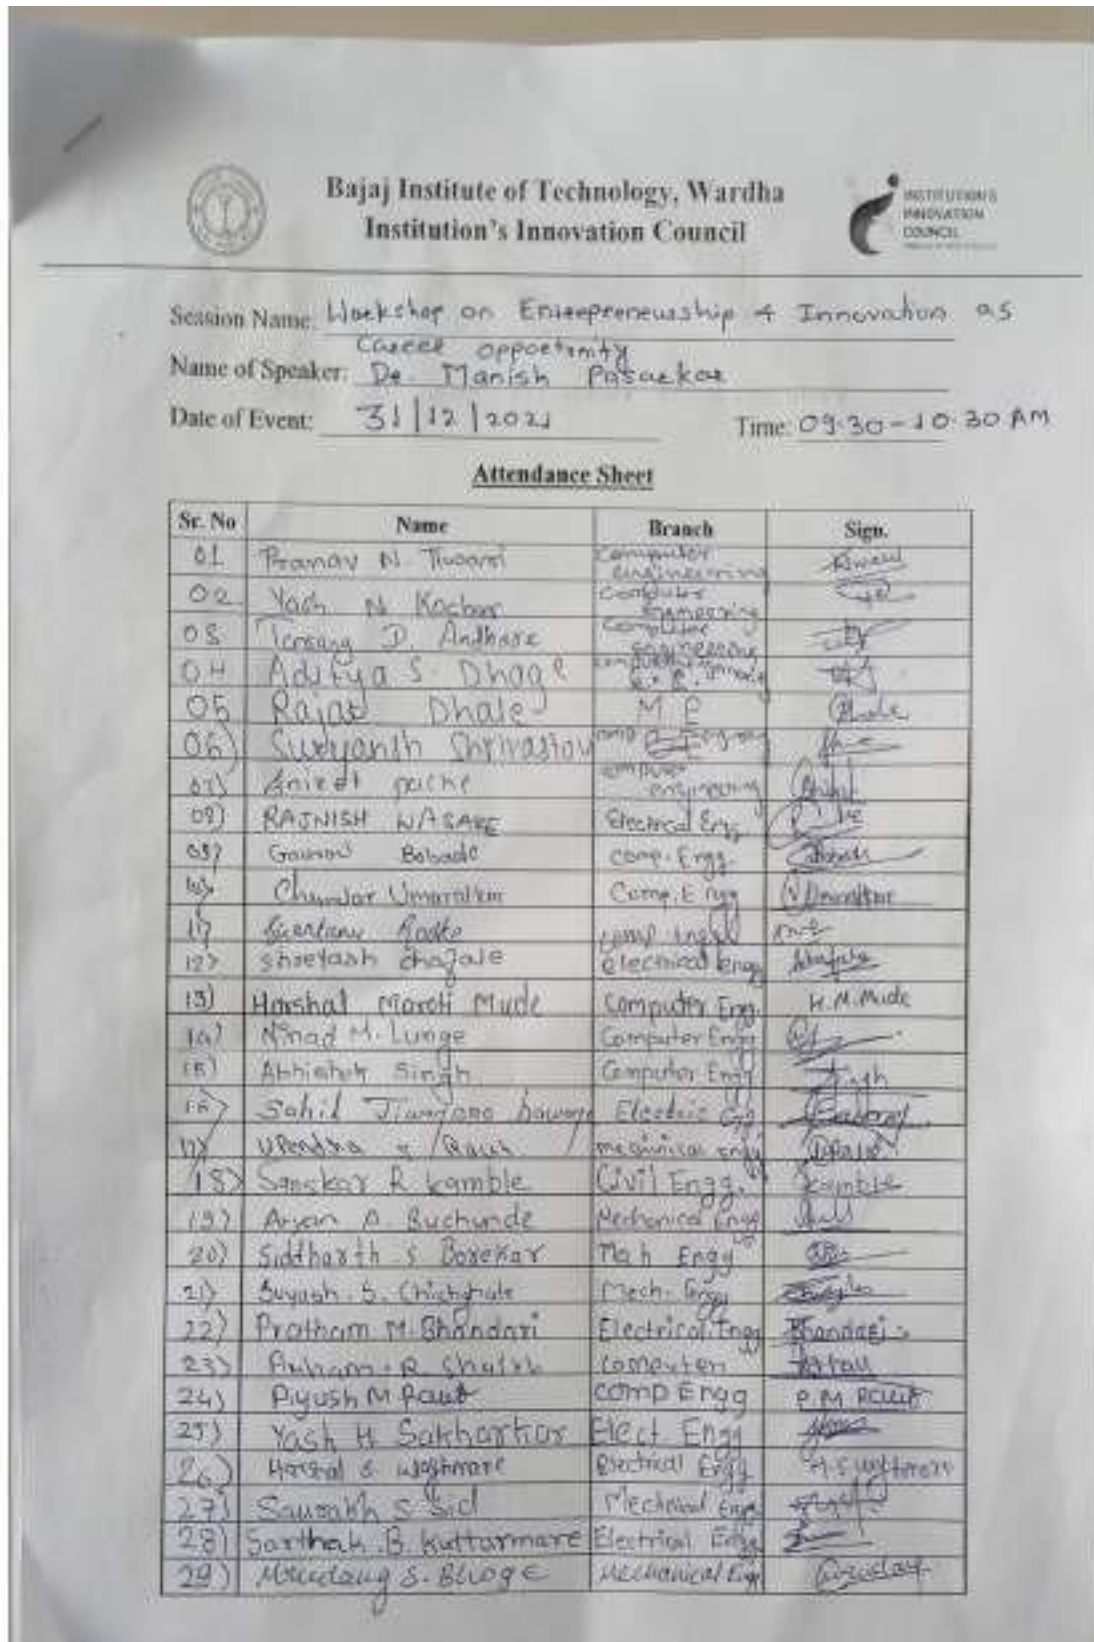 Bajaj Institute of Technology, Wardha
Institution's Innovation Council
INSTITUTION'S
INNOVATION
COUNCIL
Session Name: Workshop on Entrepreneurship & Innovation as
Career opportunity
Name of Speaker: Dr. Manish Pasarkar
Date of Event: 31/12/2021 Time: 09.30 - 10.30 AM
Attendance Sheet
Sr. No Name Branch Sign.
01 Pranav N. Tiwari computer engineering
02 Yash N Kochar Computer Engineering
03 D. Andhare Computer engineering
04 Aditya S. Dhage computer
05 Rajat Dhale M E
06) Suryansh Shrivastav
07) Aniket computer engineering
08) RAJNISH WASARE Electrical Engg
09) Gaurav Bobade comp. Engg.
10) Umaralkar Comp. Engg
11)
12) Shreyash Chafale electrical Engg
13) Harshal Maroti Mude Computer Eng. H.M.Mude
14) Ninad M. Lunge Computer Engg
15) Abhishek Singh Computer Engg Singh
16) Sahil Electric
17) Upendra Raut
18) Sanskar R kamble Civil Engg. Kamble
19) Aryan A. Buchunde Mechanical Engg
20) Siddharth S Borekar Engg
21) Suyash. S. Chichghale Mech. Engg
22) Pratham M. Bhandari Electrical. Engg Bhandari
23) R Shaikh computer
24) Piyush M Raut comp Engg P.M Raut
25) Yash H Sakharkar Elect. Engg
26) Harshal S. Waghmare Electrical Engg
27) Saurabh S Sid Mechnical Engg
28) Sarthak. B. Kuttarmare Electrical Engg
29) Mrudang S. Bhoge Mechanical Engg